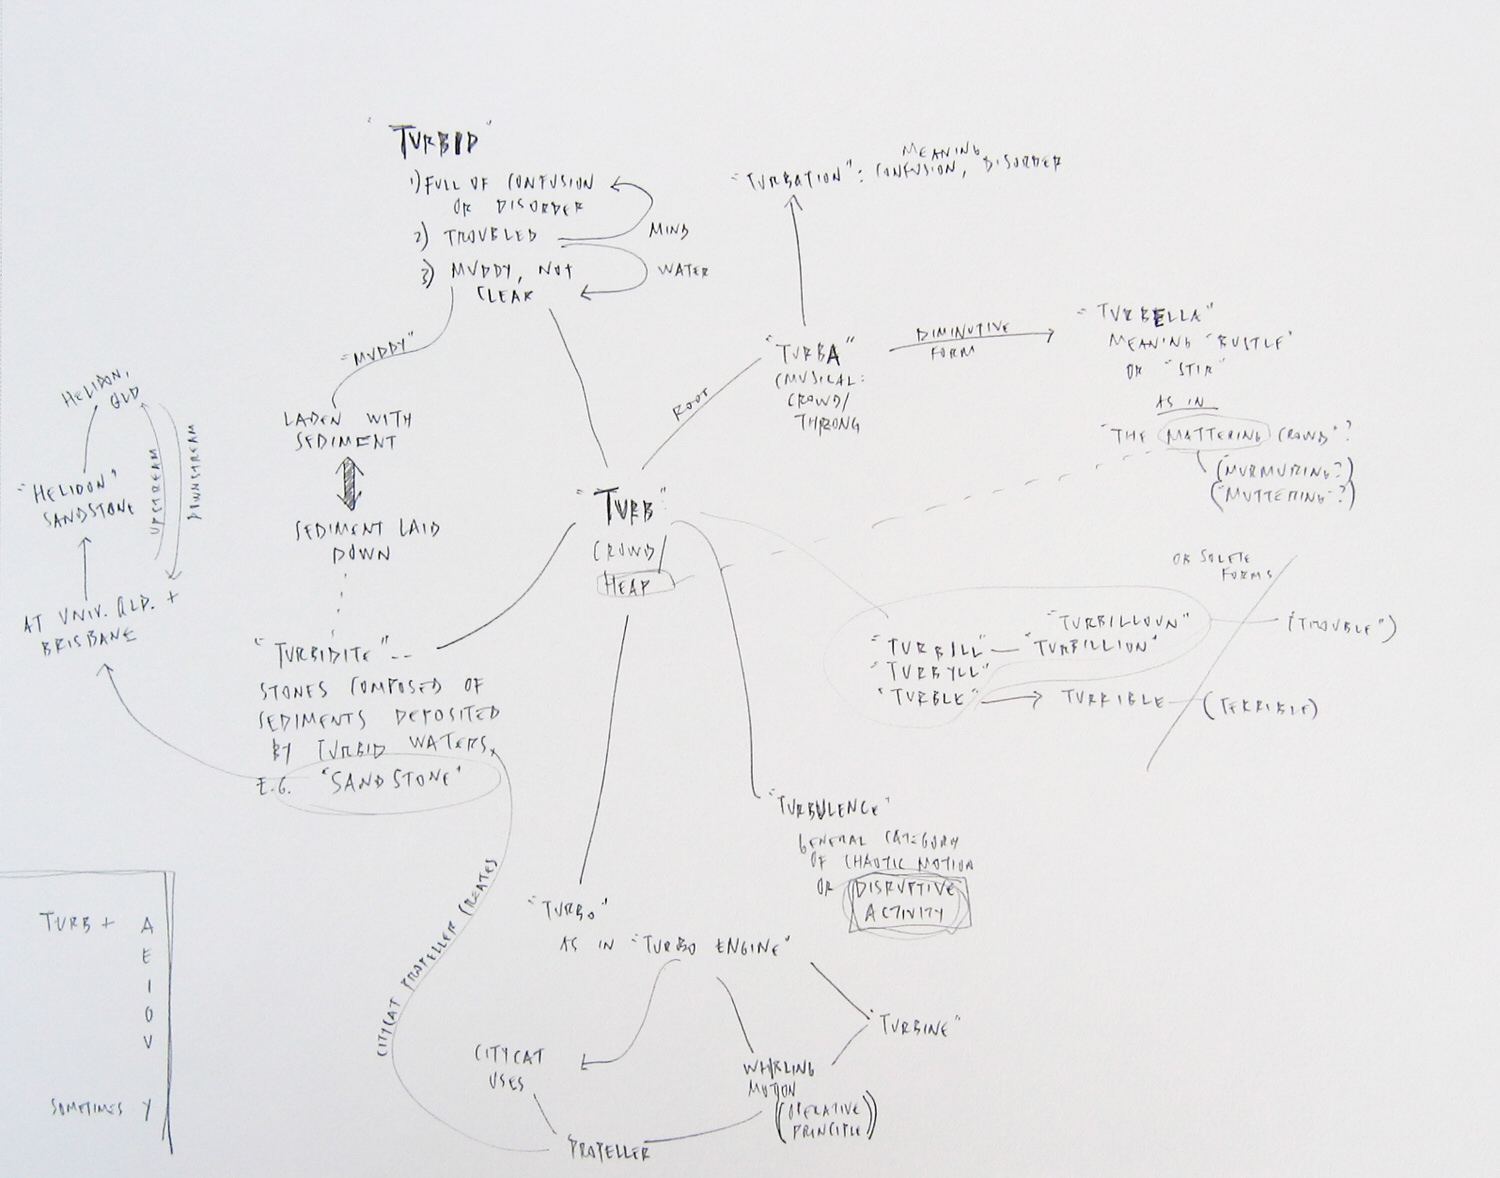 "TURBID"
1) FULL OF CONFUSION
OR DISORDER
2) TROUBLED
3) MUDDY, NOT
CLEAR
MIND
WATER
"MUDDY"
LADEN WITH
SEDIMENT
SEDIMENT LAID
DOWN
"TURBIDITE" --
STONES COMPOSED OF
SEDIMENTS DEPOSITED
BY TURBID WATERS,
E.G. "SANDSTONE"
HELIDON,
QLD
"HELIDON"
SANDSTONE
UPSTREAM
DOWNSTREAM
AT UNIV. QLD. +
BRISBANE
"TURBATION": MEANING
CONFUSION, DISORDER
"TURBA"
(MUSICAL:
CROWD/
THRONG
ROOT
DIMINUTIVE
FORM
"TURBELLA"
MEANING "BUSTLE"
OR "STIR"
AS IN
"THE MATTERING CROWD"?
(MURMURING?)
("MUTTERING"?)
"TURB"
CROWD/
HEAP
OBSOLETE
FORMS
"TURBILLOUN"
"TURBILL" — "TURBILLION"
"TURBYLL"
"TURBLE"
TURRIBLE
(TROUBLE")
(TERRIBLE)
"TURBULENCE"
GENERAL CATEGORY
OF CHAOTIC MOTION
OR DISRUPTIVE
ACTIVITY
"TURBO"
AS IN "TURBO ENGINE"
"TURBINE"
WHIRLING
MOTION
(OPERATIVE
PRINCIPLE)
CITYCAT
USES
PROPELLER
CITYCAT PROPELLER CREATES
TURB + A
E
I
O
U
SOMETIMES Y